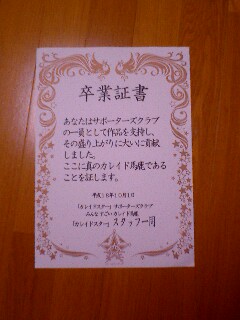 卒業証書
あなたはサポーターズクラブ
の一員として作品を支持し、
その盛り上がりに大いに貢献
しました。
ここに真のカレイド馬鹿である
ことを証します。
平成16年10月1日
「カレイドスター」サポーターズクラブ
みんなすごい カレイド馬鹿
「カレイドスター」スタッフ一同